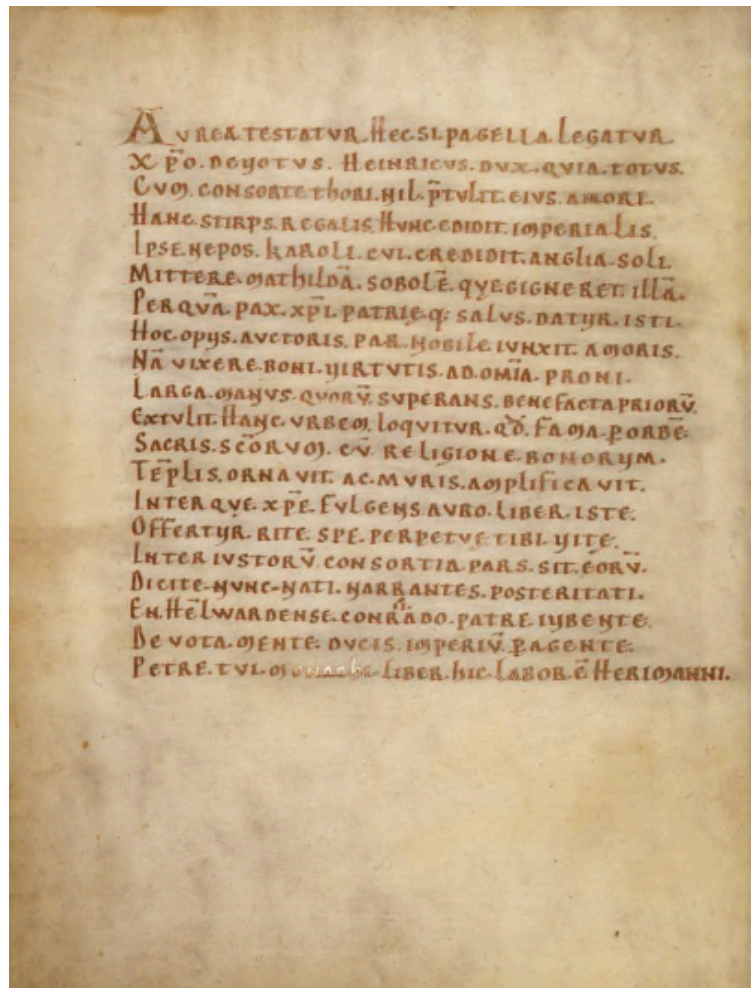 AVREA.TESTATVR.Hec.SI.PAGELLA.LEGATVR.
XP̄O.DEVOTVS.HEINRICVS.DVX.QVIA.TOTVS.
CVM.CONSORTE thORI.NIL.P̄TVLIT.EIVS.AMORI.
HANC.STIRPS.REGALIS.HVNC EDIDIT.IMPERIALIS.
IPSE.NEPOS.KAROLI.CVI.CREDIDIT.ANGLIA.SOLI.
MITTERE.MATHILDĀ.SOBOLĒ.QVE GIGNERET.ILLĀ.
PER QVĀ.PAX.XP̄I.PATRIĘ.Q;SALVS.DATVR.ISTI.
HOC.OPVS.AVCTORIS.PAR.NOBILE IVNXIT.AMORIS.
NĀ VIXERE BONI.VIRTVTIS.AD.OM̄IA.PRONI.
LARGA.MANVS.QVORV̄.SVPERANS.BENEFACTA PRIORV̄.
EXTVLIT.HANC.VRBEM.LOQVITVR.QD̄.FAMA.P̱ORBĒ.
SACRIS.SC̄ORVM.CV̄ RELIGIONE.BONORVM.
TĒPLIS.ORNAVIT.AC.MVRIS.AMPLIFICAVIT.
INTER QVE.XP̄E.FVLGENS.AVRO.LIBER.ISTE.
OFFERTVR.RITE.SPE.PERPETVE TIBI.VITE.
INTER IVSTORV̄ CONSORTIA.PARS.SIT.EORV̄.
DICITE.NVNC.NATI.NARRANTES.POSTERITATI.
EN.HELWARDENSE.CONRADO.PATRE IVBENTE.
DEVOTA.MENTE.DVCIS.IMPERIV̄.P̱AGENTE.
PETRE.TVI.MOnachi.LIBER.hic.LABOR.Ē HERIMANNI.